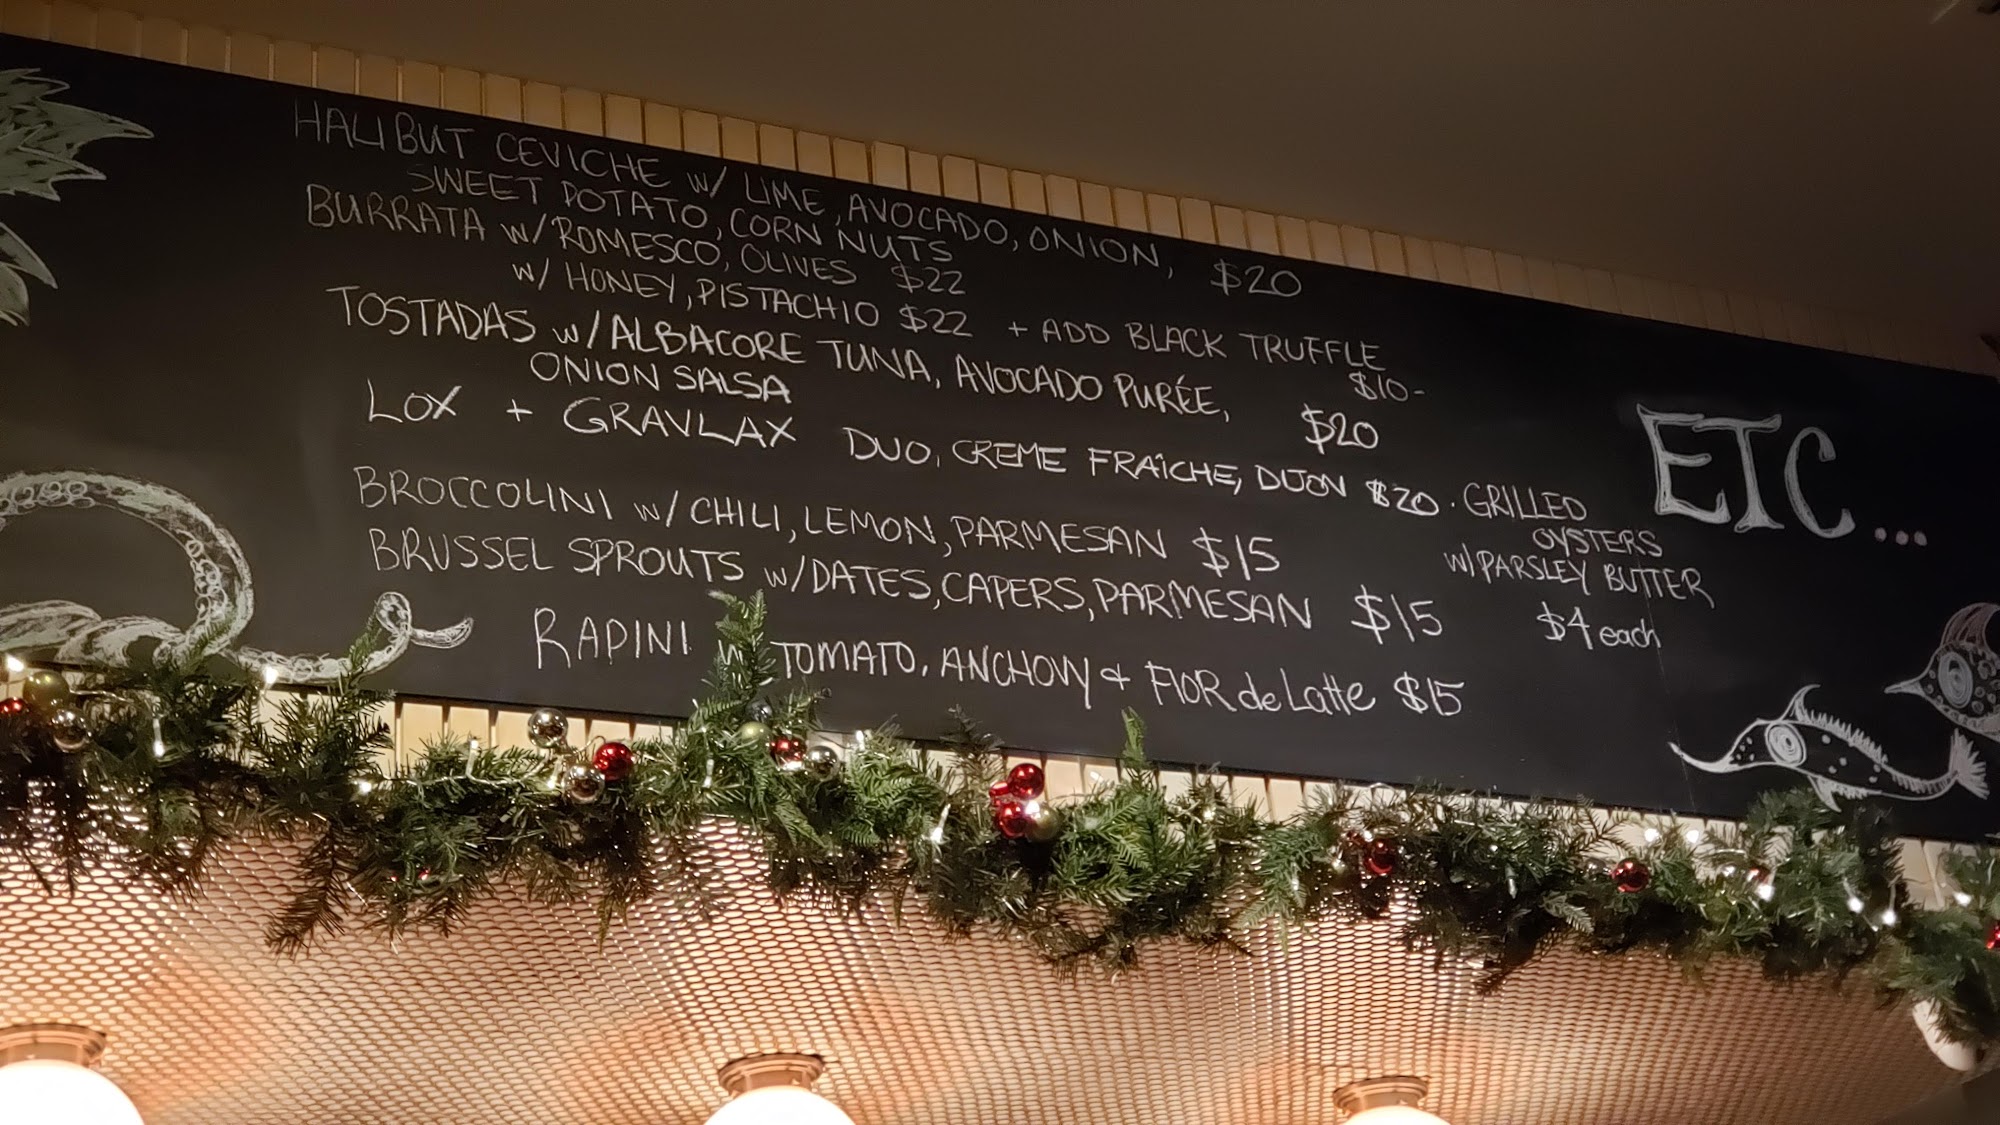 HALIBUT CEVICHE w/ LIME, AVOCADO, ONION, $20
SWEET POTATO, CORN NUTS
BURRATA w/ ROMESCO, OLIVES $22
w/ HONEY, PISTACHIO $22 + ADD BLACK TRUFFLE
$10-
TOSTADAS w/ ALBACORE TUNA, AVOCADO PURÉE, $20
ONION SALSA
LOX + GRAVLAX DUO, CREME FRAÎCHE, DIJON $20
BROCCOLINI w/ CHILI, LEMON, PARMESAN $15
BRUSSEL SPROUTS w/ DATES, CAPERS, PARMESAN $15
RAPINI w TOMATO, ANCHOVY & FIOR de Latte $15
ETC...
· GRILLED
OYSTERS
w/ PARSLEY BUTTER
$4 each